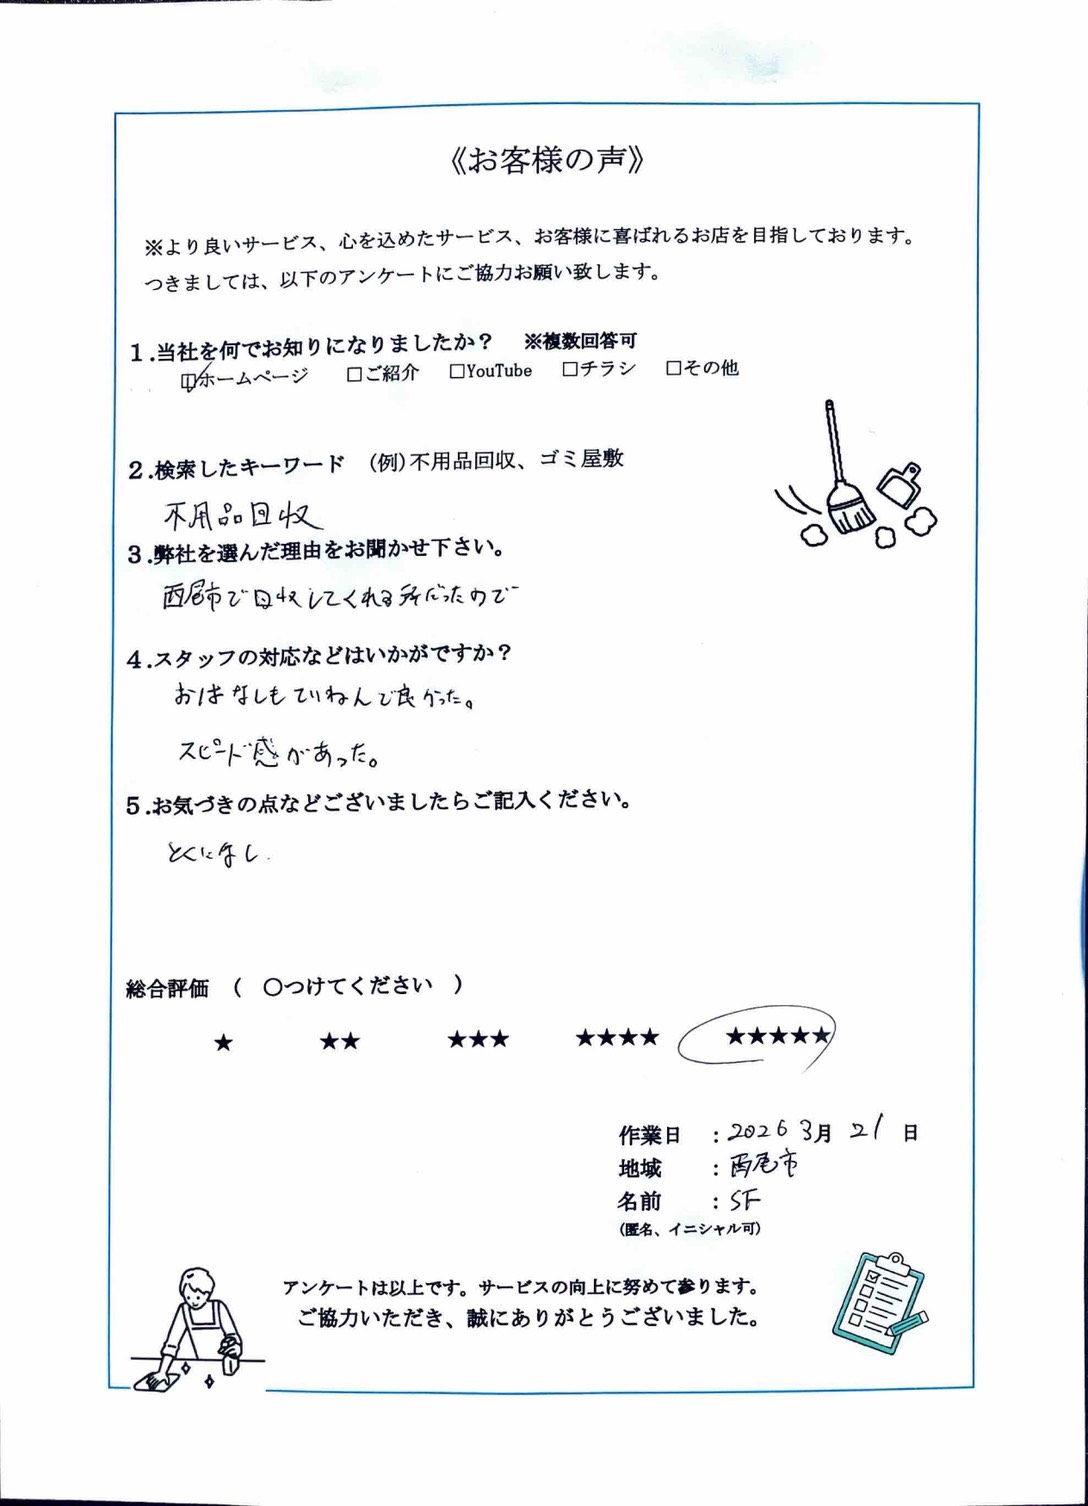 《お客様の声》
※より良いサービス、心を込めたサービス、お客様に喜ばれるお店を目指しております。
つきましては、以下のアンケートにご協力お願い致します。
1.当社を何でお知りになりましたか？　※複数回答可
☑ホームページ　□ご紹介　□YouTube　□チラシ　□その他
2.検索したキーワード　(例)不用品回収、ゴミ屋敷
不用品回収
3.弊社を選んだ理由をお聞かせ下さい。
西尾市で回収してくれる所だったので
4.スタッフの対応などはいかがですか？
おはなしもていねんで良かった。
スピード感があった。
5.お気づきの点などございましたらご記入ください。
とくになし.
総合評価　(　○つけてください　)
★　★★　★★★　★★★★　★★★★★
作業日　：2026 3月 21 日
地域　：西尾市
名前　：SF
(匿名、イニシャル可)
アンケートは以上です。サービスの向上に努めて参ります。
ご協力いただき、誠にありがとうございました。